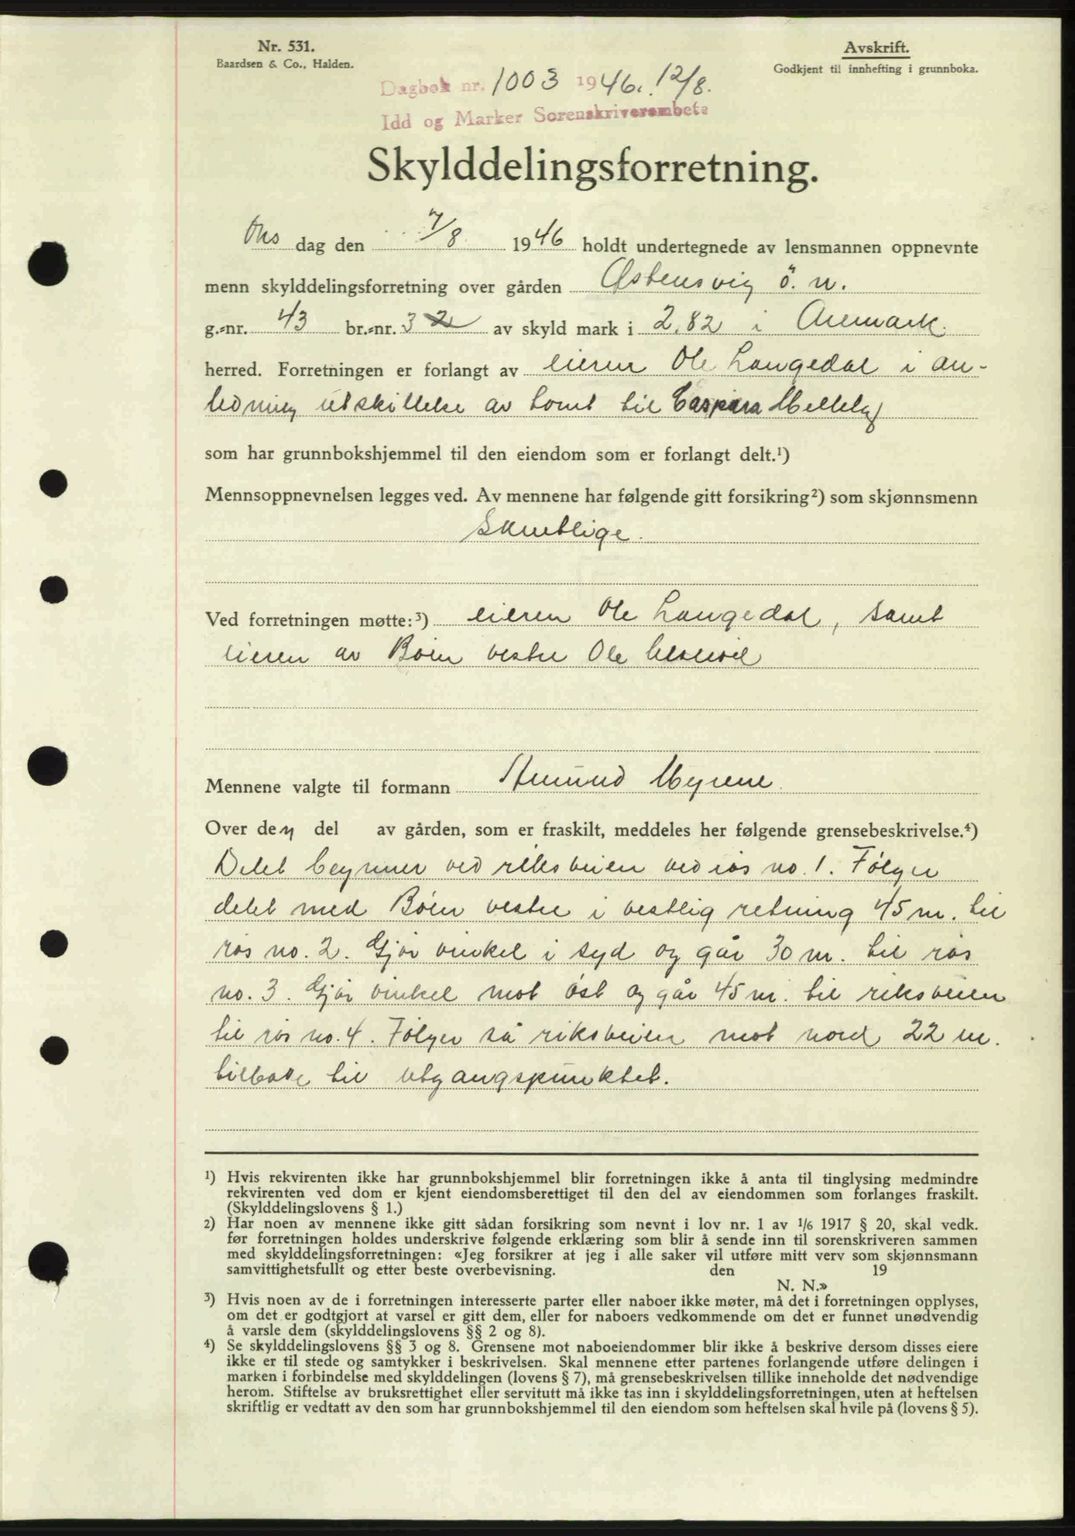 Nr. 531.
Baardsen & Co., Halden.
Avskrift.
Godkjent til innhefting i grunnboka.
Dagbok nr. 1003 1946. 12/8.
Idd og Marker Sorenskriverembete
Skylddelingsforretning.
Ons dag den 7/8 1946 holdt undertegnede av lensmannen oppnevnte
menn skylddelingsforretning over gården Østensvig ö. n.
g.-nr. 43 br.-nr. 3 2 av skyld mark i 2,82 i Aremark
herred. Forretningen er forlangt av eieren Ole Langedal i an-
ledning utskillelse av tomt til Caspara Melleby
som har grunnbokshjemmel til den eiendom som er forlangt delt.¹)
Mennsoppnevnelsen legges ved. Av mennene har følgende gitt forsikring²) som skjønnsmenn
Samtlige.
Ved forretningen møtte:³) eieren Ole Langedal, samt
eieren av Böen vestre Ole
Mennene valgte til formann Amund Myrene.
Over den del av gården, som er fraskilt, meddeles her følgende grensebeskrivelse.⁴)
Delet begynner ved riksveien ved rös no. 1. Fölger
delet med Böen vestre i vestlig retning 45 m. til
rös no. 2. Gjör vinkel i syd og går 30 m. til rös
no. 3. Gjör vinkel mot öst og går 45 m. til riksveien
til rös no. 4. Fölger så riksveien mot nord 22 m.
tilbake til utgangspunktet.
¹) Hvis rekvirenten ikke har grunnbokshjemmel blir forretningen ikke å anta til tinglysing medmindre
rekvirenten ved dom er kjent eiendomsberettiget til den del av eiendommen som forlanges fraskilt.
(Skylddelingslovens § 1.)
²) Har noen av mennene ikke gitt sådan forsikring som nevnt i lov nr. 1 av 1/6 1917 § 20, skal vedk.
før forretningen holdes underskrive følgende erklæring som blir å sende inn til sorenskriveren sammen
med skylddelingsforretningen: «Jeg forsikrer at jeg i alle saker vil utføre mitt verv som skjønnsmann
samvittighetsfullt og etter beste overbevisning. den 19
N. N.»
³) Hvis noen av de i forretningen interesserte parter eller naboer ikke møter, må det i forretningen opplyses,
om det er godtgjort at varsel er gitt dem, eller for naboers vedkommende om det er funnet unødvendig
å varsle dem (skylddelingslovens §§ 2 og 8).
⁴) Se skylddelingslovens §§ 3 og 8. Grensene mot naboeiendommer blir ikke å beskrive dersom disses eiere
ikke er til stede og samtykker i beskrivelsen. Skal mennene etter partenes forlangende utføre delingen i
marken i forbindelse med skylddelingen (lovens § 7), må grensebeskrivelsen tillike inneholde det nødvendige
herom. Stiftelse av bruksrettighet eller servitutt må ikke tas inn i skylddelingsforretningen, uten at heftelsen
skriftlig er vedtatt av den som har grunnbokshjemmel til den eiendom som heftelsen skal hvile på (lovens § 5).